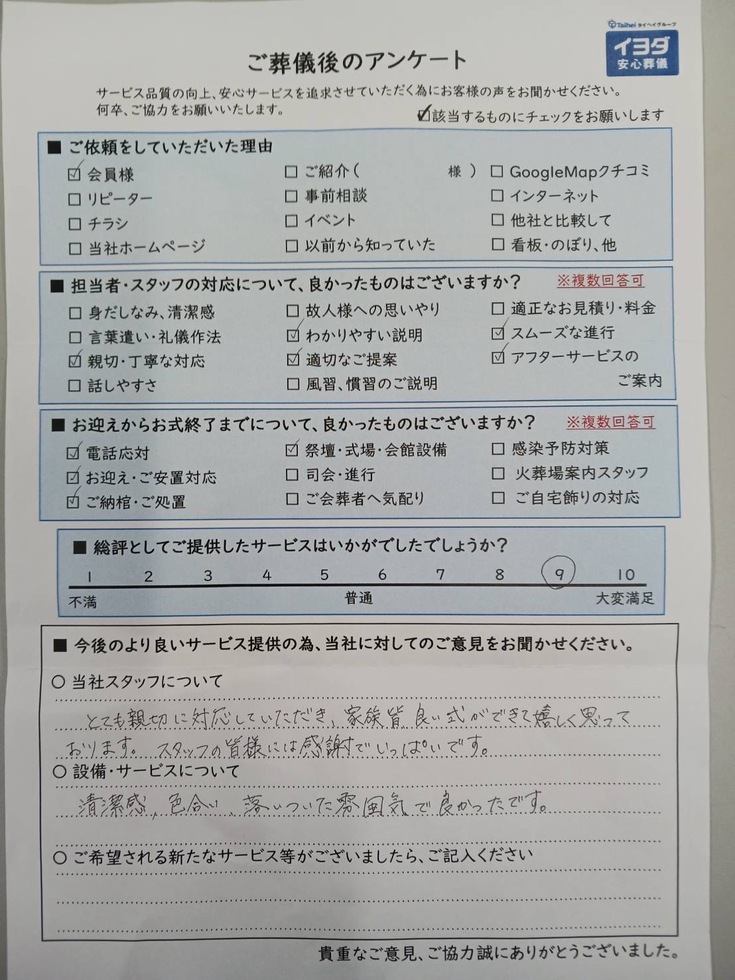 Taihei タイヘイグループ
イヨダ
安心葬儀
ご葬儀後のアンケート
サービス品質の向上、安心サービスを追求させていただく為にお客様の声をお聞かせください。
何卒、ご協力をお願いいたします。
☑該当するものにチェックをお願いします
■ ご依頼をしていただいた理由
☑ 会員様 □ ご紹介( 様 ) □ GoogleMapクチコミ
□ リピーター □ 事前相談 □ インターネット
□ チラシ □ イベント □ 他社と比較して
□ 当社ホームページ □ 以前から知っていた □ 看板・のぼり、他
■ 担当者・スタッフの対応について、良かったものはございますか? ※複数回答可
□ 身だしなみ、清潔感 □ 故人様への思いやり □ 適正なお見積り・料金
□ 言葉遣い・礼儀作法 ☑ わかりやすい説明 ☑ スムーズな進行
☑ 親切・丁寧な対応 ☑ 適切なご提案 ☑ アフターサービスの
□ 話しやすさ □ 風習、慣習のご説明 ご案内
■ お迎えからお式終了までについて、良かったものはございますか? ※複数回答可
☑ 電話応対 ☑ 祭壇・式場・会館設備 □ 感染予防対策
☑ お迎え・ご安置対応 □ 司会・進行 □ 火葬場案内スタッフ
☑ ご納棺・ご処置 □ ご会葬者へ気配り □ ご自宅飾りの対応
■ 総評としてご提供したサービスはいかがでしたでしょうか?
1 2 3 4 5 6 7 8 9 10
不満 普通 大変満足
■ 今後のより良いサービス提供の為、当社に対してのご意見をお聞かせください。
○ 当社スタッフについて
とても親切に対応していただき、家族皆良い式ができて嬉しく思って
おります。スタッフの皆様には感謝でいっぱいです。
○ 設備・サービスについて
清潔感、色合い、落いついた雰囲気で良かったです。
○ ご希望される新たなサービス等がございましたら、ご記入ください
貴重なご意見、ご協力誠にありがとうございました。